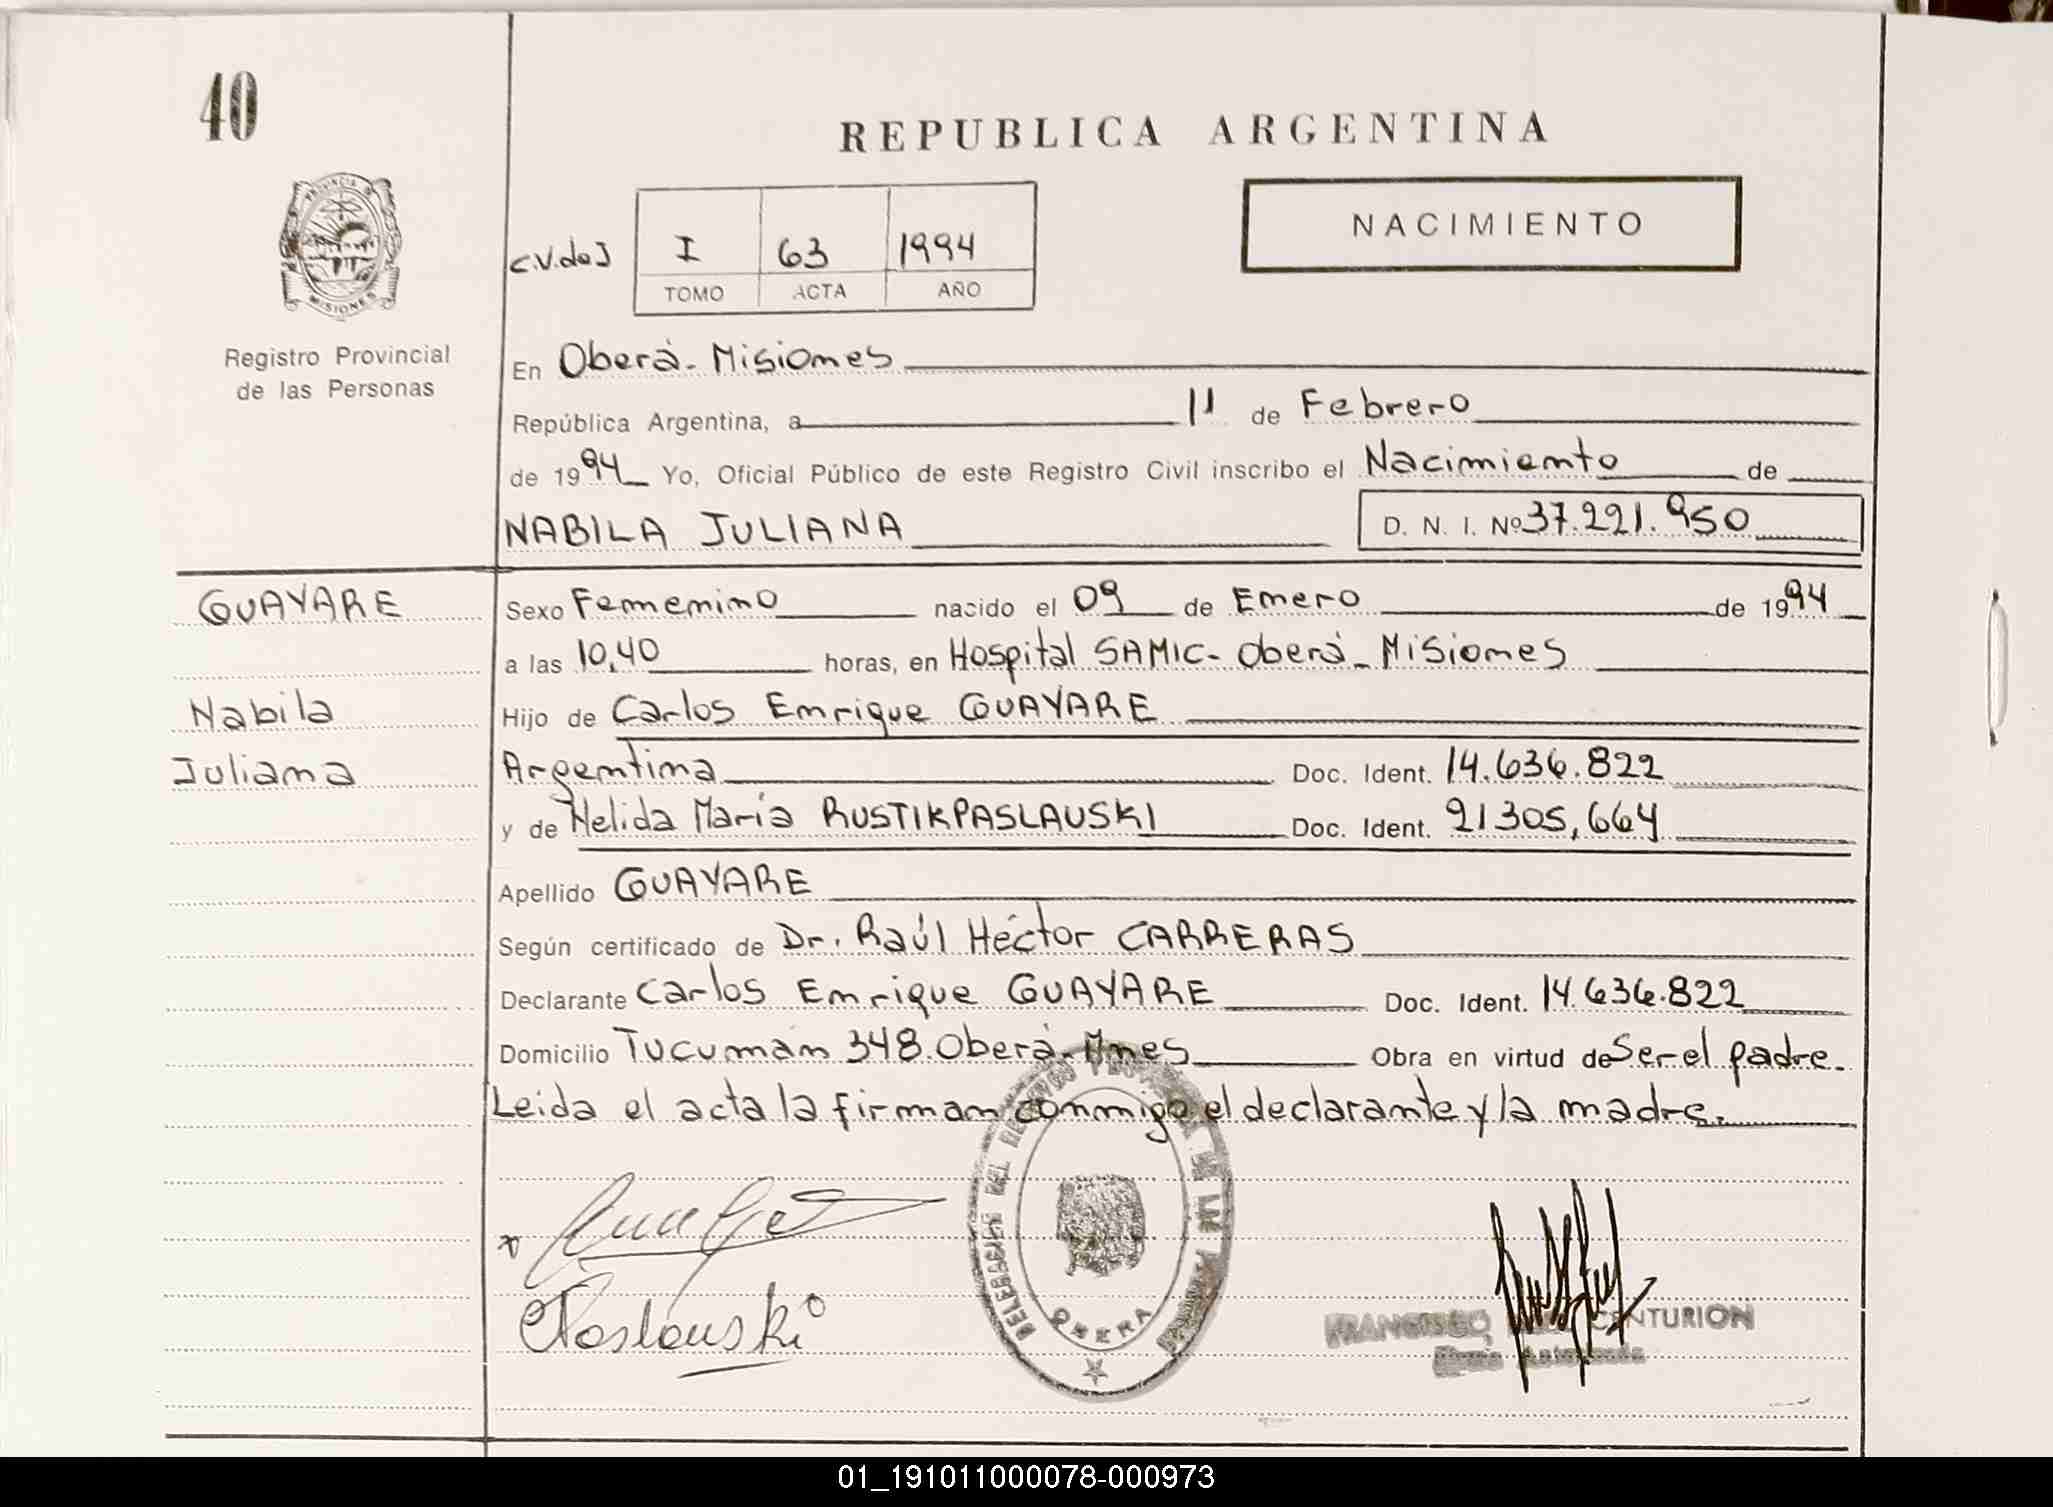 40
REPUBLICA ARGENTINA
NACIMIENTO
C.V.deJ I 63 1994
TOMO ACTA AÑO
Registro Provincial
de las Personas
En Oberá - Misiones
República Argentina, a 11 de Febrero
de 1994 Yo, Oficial Público de este Registro Civil inscribo el Nacimiento de
NABILA JULIANA D. N. I. Nº 37.221.950
GUAYARE
Nabila
Juliana
Sexo Femenino nacido el 09 de Enero de 1994
a las 10,40 horas, en Hospital SAMIC - Oberá - Misiones
Hijo de Carlos Enrique GUAYARE
Argentina Doc. Ident. 14.636.822
y de Nelida María RUSTIKPASLAUSKI Doc. Ident. 21305,664
Apellido GUAYARE
Según certificado de Dr. Raúl Héctor CARRERAS
Declarante Carlos Enrique GUAYARE Doc. Ident. 14.636.822
Domicilio Tucumán 348. Oberá - Mnes Obra en virtud de Ser el padre.
Leida el acta la firman conmigo el declarante y la madre.
DELEGACIÓN DEL REGISTRO DE LAS
OBERA
FRANCISCO CENTURION
01_191011000078-000973